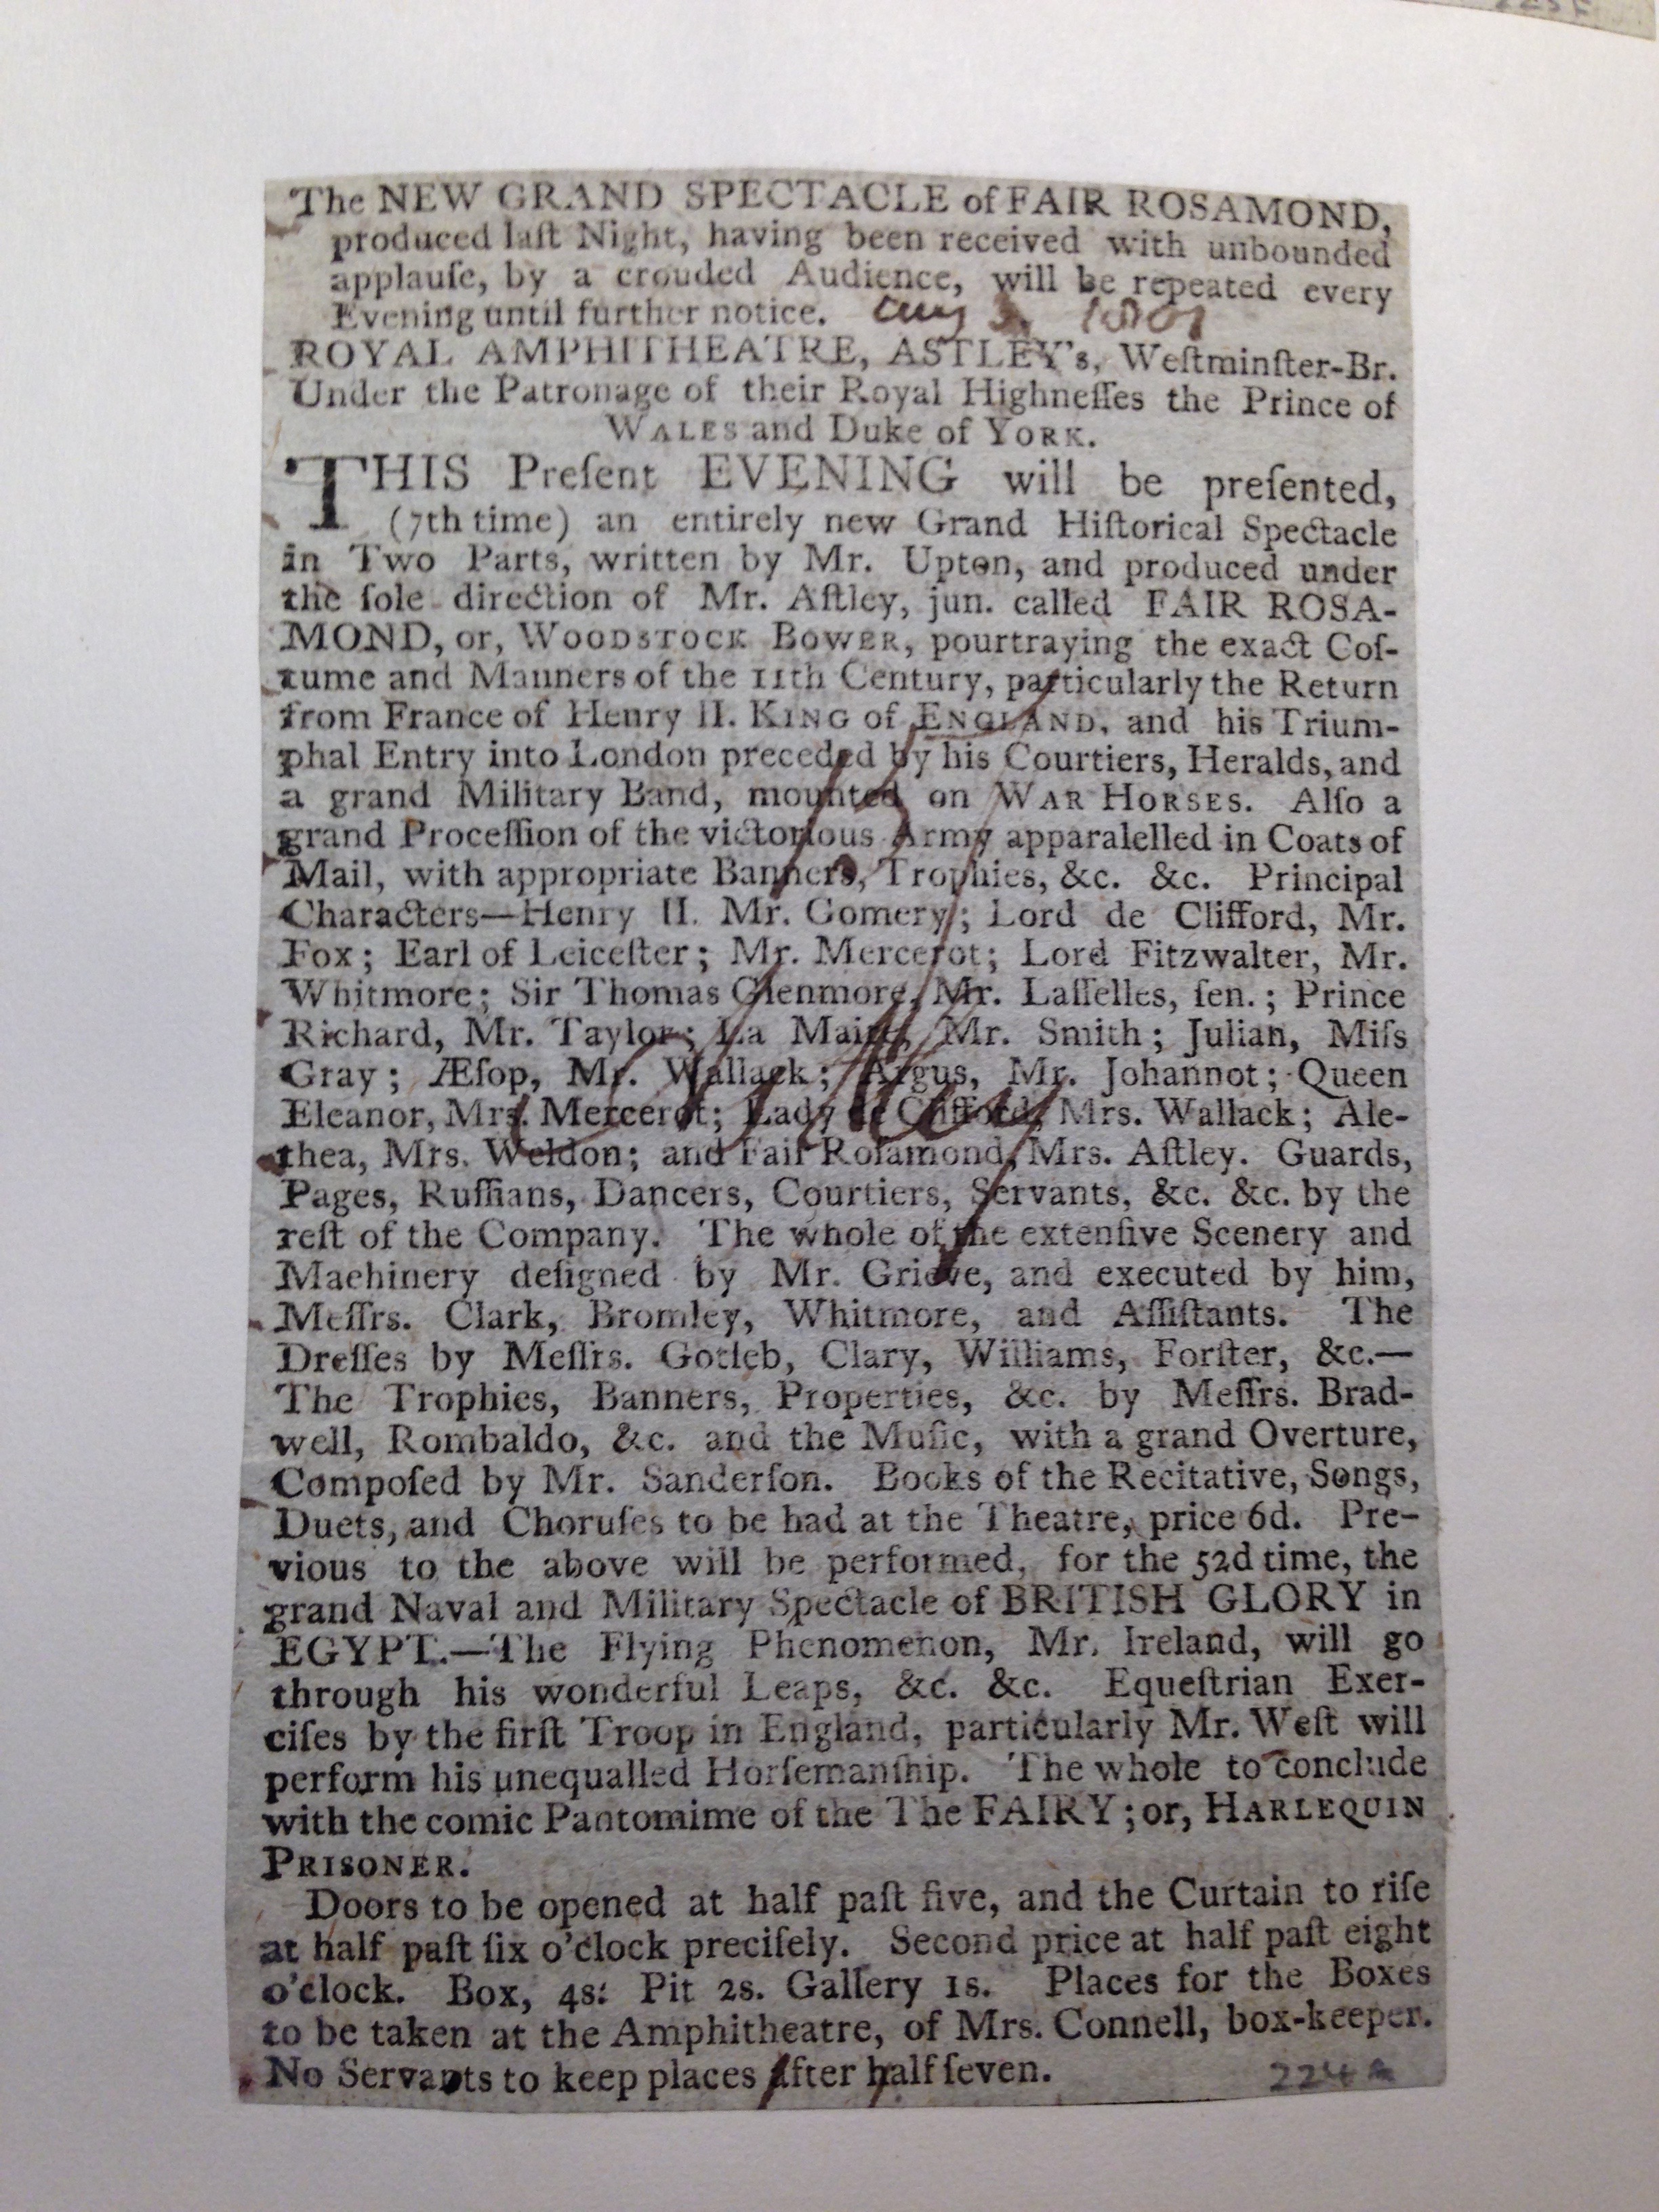 The NEW GRAND SPECTACLE of FAIR ROSAMOND,
produced laſt Night, having been received with unbounded
applauſe, by a crouded Audience, will be repeated every
Evening until further notice. Aug 3. 1801
ROYAL AMPHITHEATRE, ASTLEY's, Weſtminſter-Br.
Under the Patronage of their Royal Highneſſes the Prince of
WALES and Duke of YORK.
THIS Preſent EVENING will be preſented,
(7th time) an entirely new Grand Hiſtorical Spectacle
in Two Parts, written by Mr. Upton, and produced under
the ſole direction of Mr. Aſtley, jun. called FAIR ROSA-
MOND, or, WOODSTOCK BOWER, pourtraying the exact Coſ-
tume and Manners of the 11th Century, particularly the Return
from France of Henry II. KING of ENGLAND, and his Trium-
phal Entry into London preceded by his Courtiers, Heralds, and
a grand Military Band, mounted on WAR HORSES. Alſo a
grand Proceſſion of the victorious Army apparalelled in Coats of
Mail, with appropriate Banners, Trophies, &c. &c. Principal
Characters—Henry II. Mr. Gomery; Lord de Clifford, Mr.
Fox; Earl of Leiceſter; Mr. Mercerot; Lord Fitzwalter, Mr.
Whitmore; Sir Thomas Glenmore, Mr. Laſſelles, ſen.; Prince
Richard, Mr. Taylor; La Mair, Mr. Smith; Julian, Miſs
Gray; Æſop, Mr. Wallack; Argus, Mr. Johannot; Queen
Eleanor, Mrs. Mercerot; Lady de Clifford, Mrs. Wallack; Ale-
thea, Mrs. Weldon; and Fair Roſamond, Mrs. Aſtley. Guards,
Pages, Ruffians, Dancers, Courtiers, Servants, &c. &c. by the
reſt of the Company. The whole of the extenſive Scenery and
Machinery deſigned by Mr. Grieve, and executed by him,
Meſſrs. Clark, Bromley, Whitmore, and Aſſiſtants. The
Dreſſes by Meſſrs. Gotleb, Clary, Williams, Forſter, &c.—
The Trophies, Banners, Properties, &c. by Meſſrs. Brad-
well, Rombaldo, &c. and the Muſic, with a grand Overture,
Compoſed by Mr. Sanderſon. Books of the Recitative, Songs,
Duets, and Choruſes to be had at the Theatre, price 6d. Pre-
vious to the above will be performed, for the 52d time, the
grand Naval and Military Spectacle of BRITISH GLORY in
EGYPT.—The Flying Phenomenon, Mr. Ireland, will go
through his wonderful Leaps, &c. &c. Equeſtrian Exer-
ciſes by the firſt Troop in England, particularly Mr. Weſt will
perform his unequalled Horſemanſhip. The whole to conclude
with the comic Pantomime of the The FAIRY; or, HARLEQUIN
PRISONER.
Doors to be opened at half paſt five, and the Curtain to riſe
at half paſt ſix o'clock preciſely. Second price at half paſt eight
o'clock. Box, 4s. Pit 2s. Gallery 1s. Places for the Boxes
to be taken at the Amphitheatre, of Mrs. Connell, box-keeper.
No Servants to keep places after half ſeven.
224